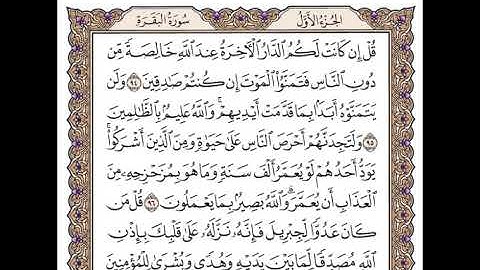 الجزء الأول
سورة البقرة
قُلْ إِن كَانَتْ لَكُمُ ٱلدَّارُ ٱلْأَخِرَةُ عِندَ ٱللَّهِ خَالِصَةً مِّن
دُونِ ٱلنَّاسِ فَتَمَنَّوُا۟ ٱلْمَوْتَ إِن كُنتُمْ صَٰدِقِينَ ٩٤ وَلَن
يَتَمَنَّوْهُ أَبَدًۢا بِمَا قَدَّمَتْ أَيْدِيهِمْ وَٱللَّهُ عَلِيمٌۢ بِٱلظَّٰلِمِينَ
٩٥ وَلَتَجِدَنَّهُمْ أَحْرَصَ ٱلنَّاسِ عَلَىٰ حَيَوٰةٍ وَمِنَ ٱلَّذِينَ أَشْرَكُوا۟ۚ
يَوَدُّ أَحَدُهُمْ لَوْ يُعَمَّرُ أَلْفَ سَنَةٍ وَمَا هُوَ بِمُزَحْزِحِهِۦ مِنَ
ٱلْعَذَابِ أَن يُعَمَّرَۗ وَٱللَّهُ بَصِيرٌۢ بِمَا يَعْمَلُونَ ٩٦ قُلْ مَن
كَانَ عَدُوًّا لِّجِبْرِيلَ فَإِنَّهُۥ نَزَّلَهُۥ عَلَىٰ قَلْبِكَ بِإِذْنِ
ٱللَّهِ مُصَدِّقًا لِّمَا بَيْنَ يَدَيْهِ وَهُدًى وَبُشْرَىٰ لِلْمُؤْمِنِينَ